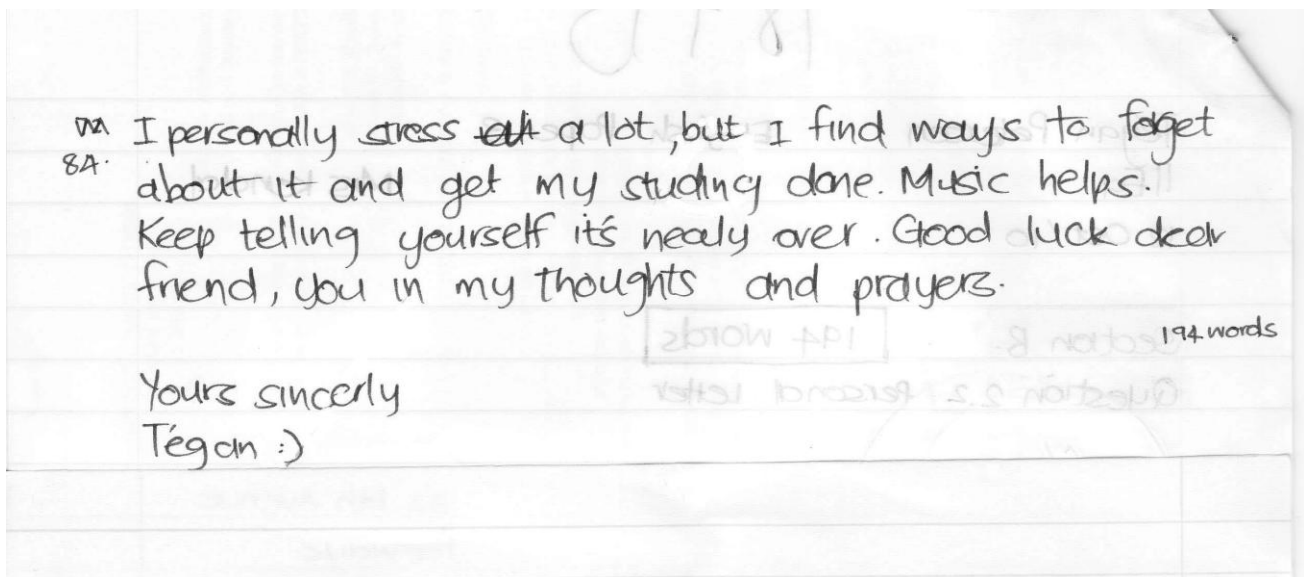 I personally stress a lot, but I find ways to foget
84. about it and get my studing done. Music helps.
Keep telling yourself it's nealy over. Good luck dear
friend, you in my thoughts and prayers.
194 words
Yours sincerly
Tégan :)